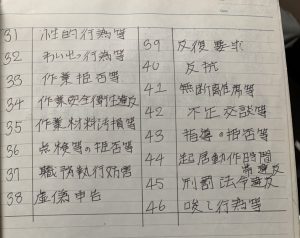 31 性的行為等
32 わいせつ行為等
33 作業拒否等
34 作業安全衛生違反
35 作業材料汚損等
36 点検等の拒否等
37 職務執行妨害
38 虚偽申告
39 反復要求
40 反抗
41 無断離席等
42 不正交談等
43 指導の拒否等
44 起居動作時間帯違反
45 刑罰法令違反
46 唆し行為等